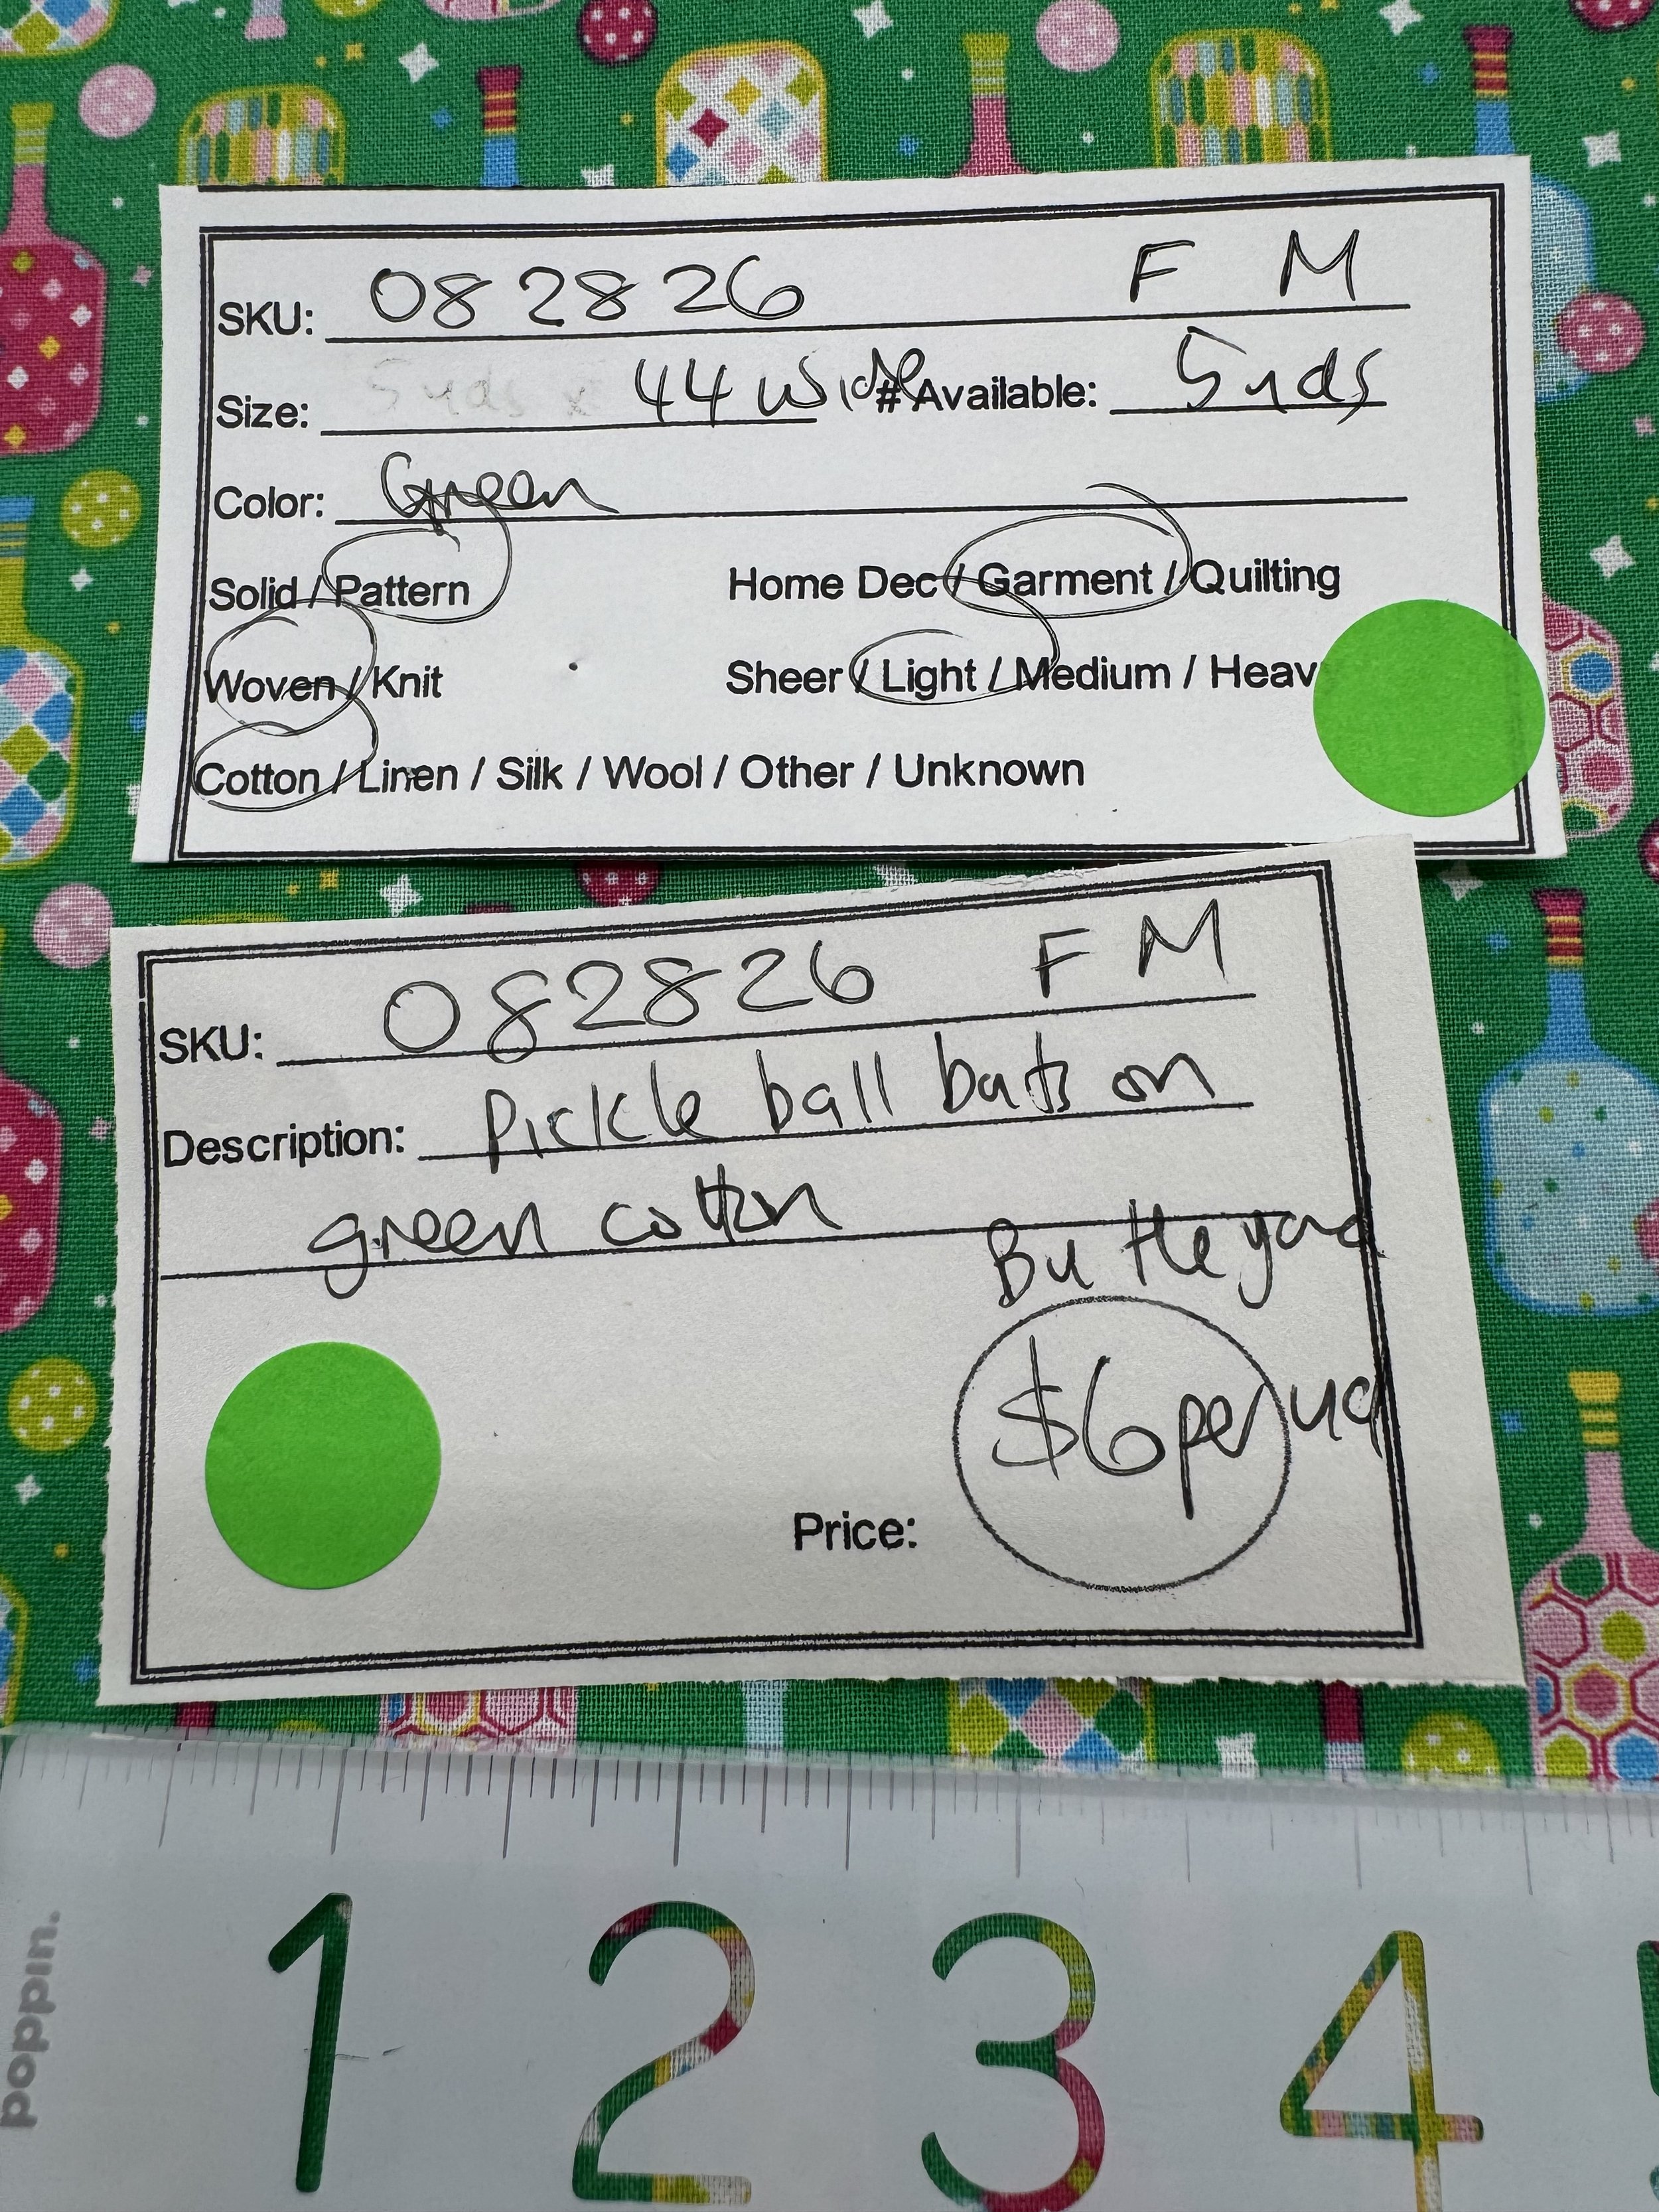 SKU: 082826 F M
Size: 5yds x 44 wide # Available: 5yds
Color: Green
Solid / Pattern Home Dec / Garment / Quilting
Woven / Knit Sheer / Light / Medium / Heav
Cotton / Linen / Silk / Wool / Other / Unknown
SKU: 082826 F M
Description: Pickle ball bats on
green cotton
By the yard
$6 per yd
Price:
poppin.
1 2 3 4